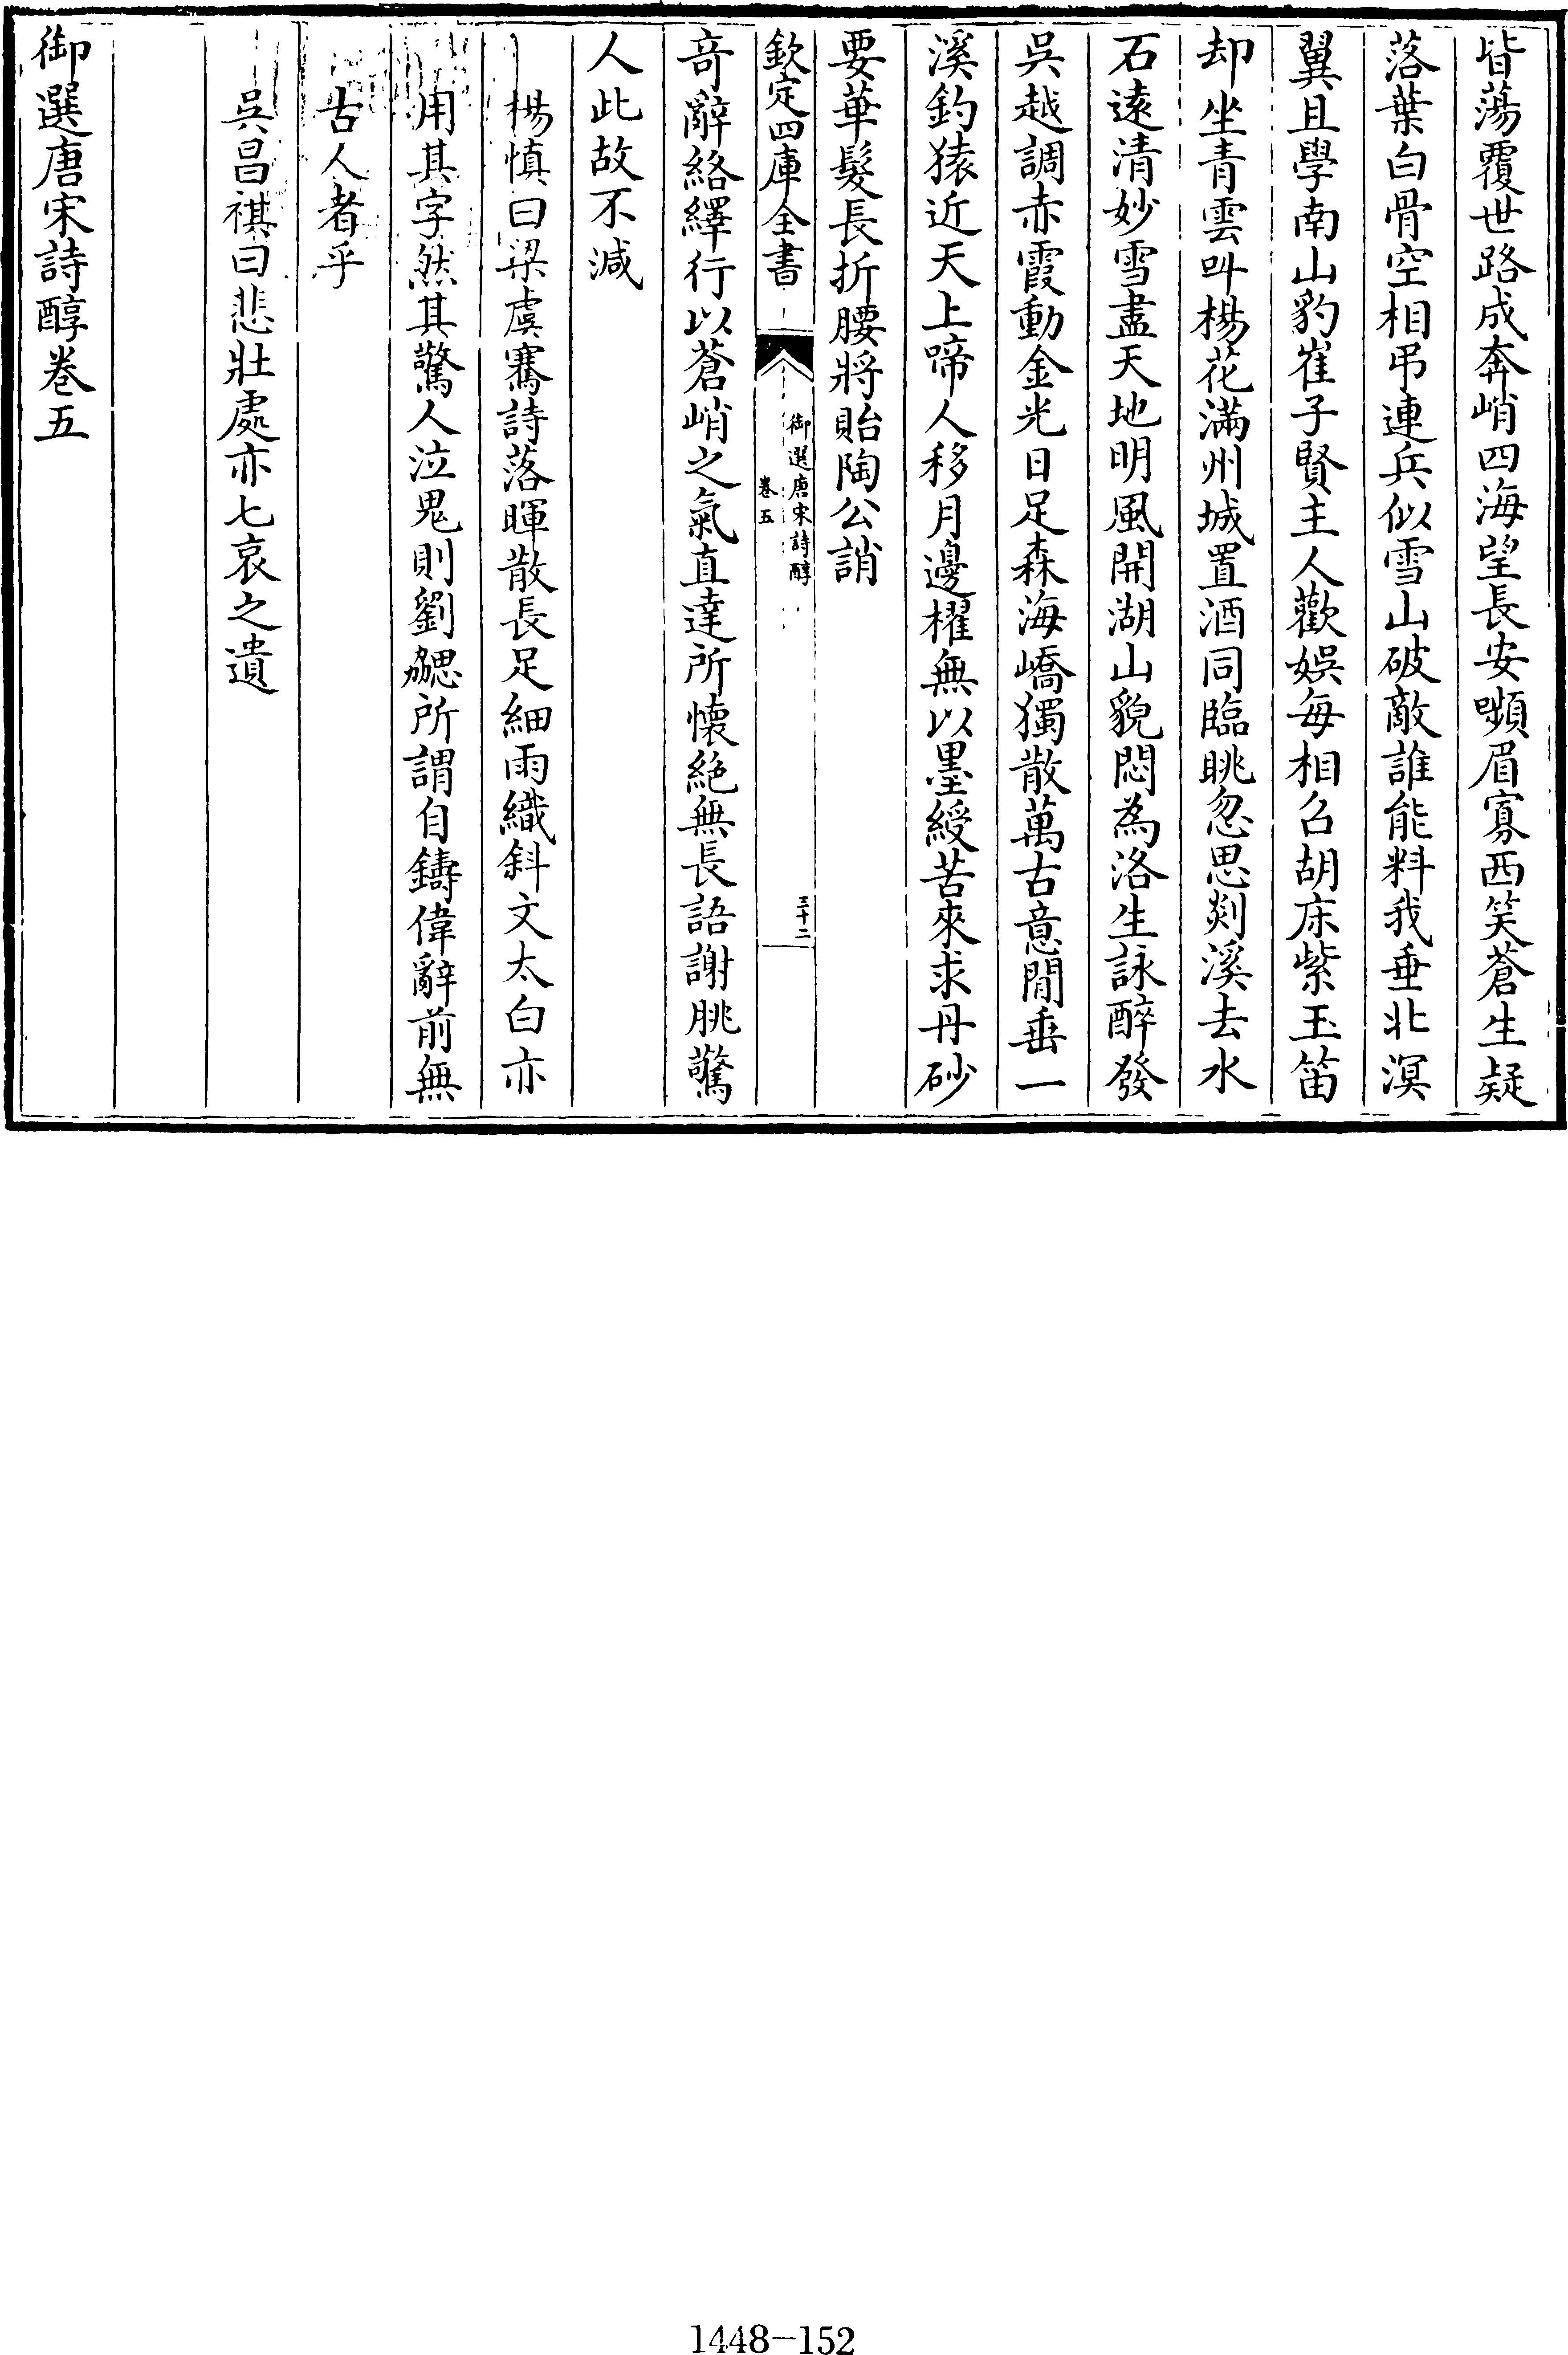 皆蕩覆世路成奔峭四海望長安嚬眉寡西笑蒼生疑
落葉白骨空相弔連兵似雪山破敵誰能料我垂北溟
翼且學南山豹崔子賢主人歡娛毎相召胡床紫玉笛
却坐青雲叫楊花滿州城置酒同臨眺忽思剡溪去水
石遠清妙雪盡天地明風開湖山貌悶為洛生詠醉發
吳越調赤霞動金光日足森海嶠獨散萬古意閒垂一
溪釣猿近天上啼人移月邊櫂無以墨綬苦來求丹砂
要華髮長折腰將貽陶公誚
欽定四庫全書
御選唐宋詩醇
卷五
三十二
奇辭絡繹行以蒼峭之氣直達所懐絶無長語謝朓驚
人此故不減
楊慎曰梁虞騫詩落暉散長足細雨織斜文太白亦
用其字然其驚人泣鬼則劉勰所謂自鑄偉辭前無
古人者乎
吳昌祺曰悲壯處亦七哀之遺
御選唐宋詩醇卷五
1448-152